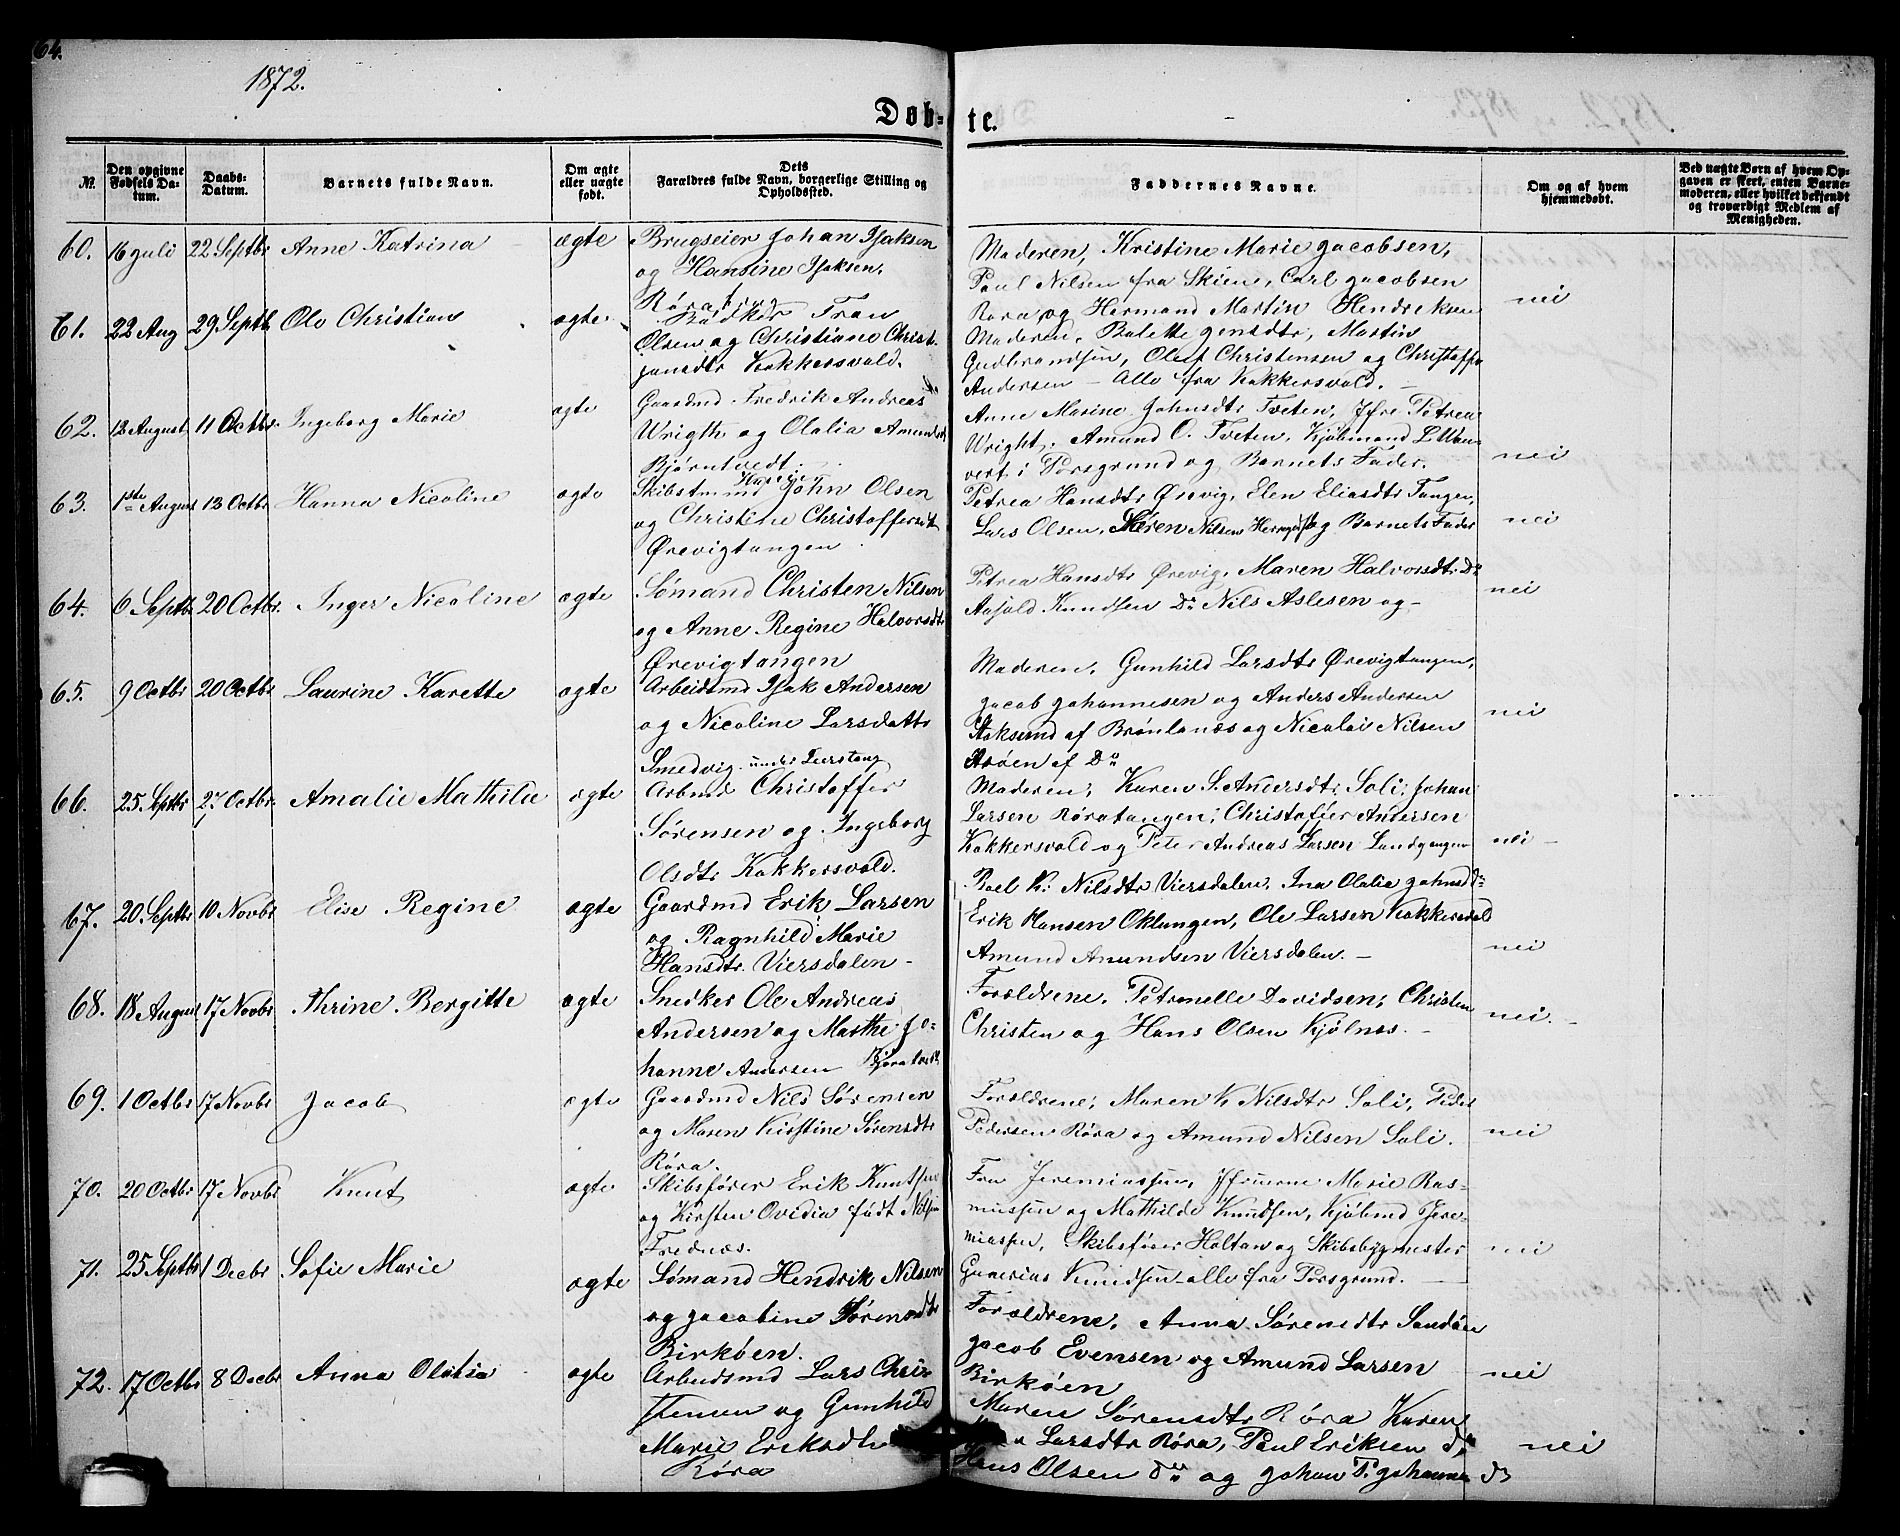 64.
1872.
Døb- te.
No.
Den opgivne Fødsels Datum.
Daabs-Datum.
Barnets fulde Navn.
Om ægte eller uægte født.
Dets Forældres fulde Navn, borgerlige Stilling og Opholdssted.
Faddernes Navne.
Om og af hvem hjemmedøbt.
Ved uægte Børn af hvem Opgaven er skeet, enten Barnemoderen, eller hvilket bekjendt og troværdigt Medlem af Menigheden.
60. 16 Juli 22 Septbr Anne Katrina ægte Brugseier Johan Isaksen
og Hansine Isaksen,
Røra
Moderen, Kristine Marie Jacobsen,
Paul Nilsen fra Skien, Carl Jacobsen
Rora, og Hermand Martin Hendreksen
nei
61. 22 Aug 29 Septb Ole Christian ægte Bødker Fran
Olsen og Christiane Christ-
jansdtr Kokkersvold.
Moderen, Bolette Jensdtr, Martin
Gudbrandsen, Oluf Christensen og Christoffer
Andersen – Alle fra Kokkersvold. –
62. 12 August 11 Octbr. Ingeborg Marie ægte Gaardmd Fredrik Andreas
Wrigth og Olalia Amundsdtr
Bjørntvedt.
Anne Marine Johnsdtr Tveten, Jfre Petrea
Wright, Amund O. Tveten, Kjøbmand L. Wan-
vert i Porsgrund og Barnets Fader.
nei
63. 1ste August 13 Octbr Hanna Nicoline ægte Skibstmmd John Olsen
og Christine Christoffersdtr
Ørevigtangen
Petrea Hansdtr Ørevig, Elen Eliasdtr Tangen,
Lars Olsen, Søren Nilsen og Barnets Fader
nei
64. 6 Septbr 20 Octbr. Inger Nicoline ægte Sømand Christen Nilsen
og Anne Regine Halvorsdtr
Ørevigtangen
Petrea Hansdtr Ørevig, Maren Halvorsdtr Do
Knudsen Do Nils Aslesen og –
nei
65. 9 Octbr 20 Octbr Laurine Karette ægte Arbeidsmd Isak Andersen
og Nicoline Larsdattr
Smedvig
Moderen, Gunhild Larsdtr Ørevigtangen,
Jacob Johannesen og Anders Andersen
Stoksund af Brønlanæs og Nicolai Nilsen
Asøen af Do
nei
66. 25. Septbr 27 Octbr. Amalie Mathilde ægte Arbmd Christoffer
Sørensen og Ingeborg
Olsdtr Kokkersvold.
Moderen; Karen S. Andersdtr Soli; Johan
Larsen Røratangen; Christoffer Andersen
Kokkersvold og Peter Andreas Larsen Landgangen
nei –
67. 20. Septbr 10 Novbr Elise Regine ægte Gaardmd Erik Larsen
og Ragnhild Marie
Hansdtr. Viersdalen –
Roel K. Nilsdtr Viersdalen, Ina Olalia Johnsd do
Erik Hansen Oklungen, Ole Larsen Kokkersvold
Amund Amundsen Viersdalen. –
nei
68. 18 August 17 Novbr Thrine Bergitte ægte Snedker Ole Andreas
Andersen og Marthe Jo-
hanne Andersen
Forældrene, Petronelle Davidsen; Christen
Christen og Hans Olsen Kjølnes. –
nei. –
69. 1 Octbr 17 Novbr Jacob ægte Gaardmd Nils Sørensen
og Maren Kirstine Sørensdtr
Røra.
Forældrene; Maren K. Nilsdtr Soli, Peder
Pedersen Røra og Amund Nilsen Soli.
nei
70. 20 Octbr 17 Novbr Knut ægte Skibsfører Erik Knutsen
og Kirsten Ovidia født Nilsen
Frednæs.
Fru Jeremiassen, Jfruerne Marie Ras-
mussen og Mathilde Knudsen, Kjøbmd Jere-
miassen, Skibsfører Holtan og Skibsbygmester
Gunerius Knudsen – alle fra Porsgrund.
nei
71. 25 Septbr 1 Decbr Sofie Marie ægte Sømand Hendrik Nilsen
og Jacobine Sørensdtr
Birkøen.
Forældrene, Anna Sørensdtr Sandøen
Jacob Evensen og Amund Larsen
Birkøen
nei
72. 17 Octbr 8 Decbr Anna Olatia ægte Arbeidsmd Lars Chri-
stensen og Gunhild
Marie Eriksdtr
Røra
Maren Sørensdtr Røra Karen
Larsdtr Røra, Paul Eriksen do
Hans Olsen do og Johan P. Johannes do
nei